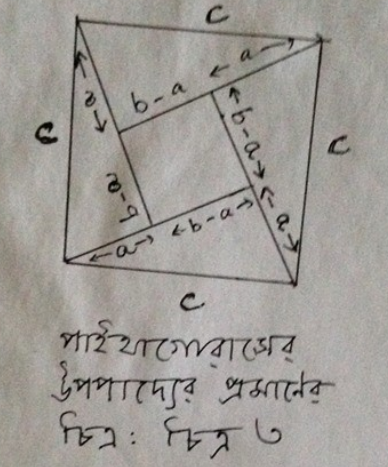 c
a
b-a
b-a
a
c
c
b-a
a
b-a
a
c
পাইথাগোরাসের
উপপাদ্যের প্রমানের
চিত্র: চিত্র ৩